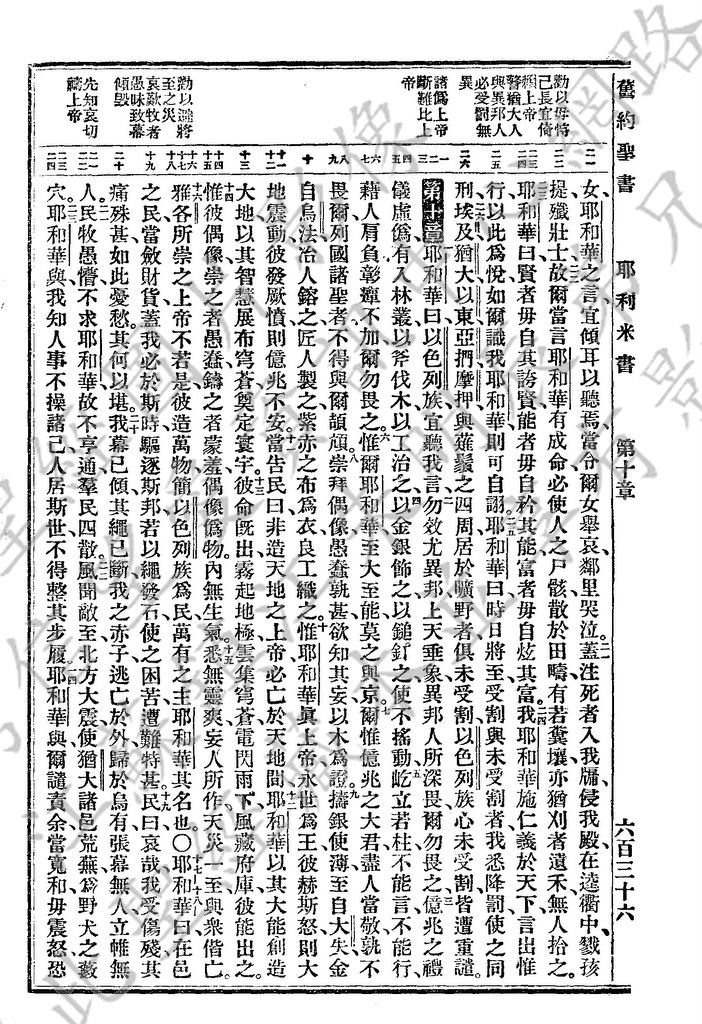 舊約聖書 耶利米書 第十章 六百三十六
勸以毋恃己長宜倚賴上帝
警猶大人與異邦人必受罰無異
諸僞上帝斷難比上帝
勸以避將至之災
哀歎牧者愚昧致幕傾毀
先知哀切禱上帝
女耶和華之言宜傾耳以聽焉當令爾女舉哀鄰里哭泣蓋注死者入我牖侵我殿在逵衢中戮孩
提殲壯士故爾當言耶和華有成命必使人之尸骸散於田疇有若糞壤亦猶刈者遺禾無人拾之
耶和華曰賢者毋自其誇賢能者毋自矜其能富者毋自炫其富我耶和華施仁義於天下言出惟
行以此爲悅如爾識我耶和華則可自詡耶和華曰時日將至受割與未受割者我悉降罰使之同
刑埃及猶大以東亞捫摩押與薙鬚之四周居於曠野者俱未受割以色列族心未受割皆遭重譴
第十章耶和華曰以色列族宜聽我言勿效尤異邦上天垂象異邦人所深畏爾勿畏之億兆之禮
儀虛僞有入林叢以斧伐木以工治之以金銀飾之以鎚釘之使不搖動屹立若柱不能言不能行
藉人肩負彰癉不加爾勿畏之惟爾耶和華至大至能莫之與京爾惟億兆之大君盡人當敬孰不
畏爾列國諸聖者不得與爾頡頏崇拜偶像愚蠢孰甚欲知其妄以木爲證擣銀使薄至自大失金
自烏法冶人鎔之匠人製之紫赤之布爲衣良工織之惟耶和華眞上帝永世爲王彼赫斯怒則大
地震動彼發厥憤則億兆不安當告民曰非造天地之上帝必亡於天地間耶和華以其大能創造
大地以其智慧展布穹蒼奠定寰宇彼命旣出霧起地極雲集穹蒼電閃雨下風藏府庫彼能出之
惟彼偶像崇之者愚蠢鑄之者蒙羞偶像僞物內無生氣悉無靈爽妄人所作天災一至與衆偕亡
雅各所崇之上帝不若是彼造萬物簡以色列族爲民萬有之主耶和華其名也〇耶和華曰在邑
之民當斂財貨蓋我必於斯時驅逐斯邦若以繩發石使之困苦遭難特甚民曰哀哉我受傷殘其
痛殊甚如此憂愁其何以堪我幕已傾其繩已斷我之赤子逃亡於外歸於烏有張幕無人立帷無
人民牧愚懵不求耶和華故不亨通羣民四散風聞敵至北方大震使猶大諸邑荒蕪爲野犬之藪
穴耶和華與我知人事不操諸己人居斯世不得整其步履耶和華與爾譴責余當寬和毋震怒恐